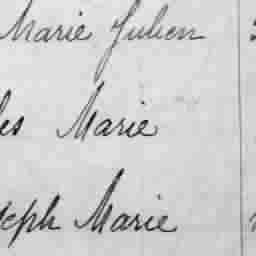 Marie Julien
les Marie
oseph Marie